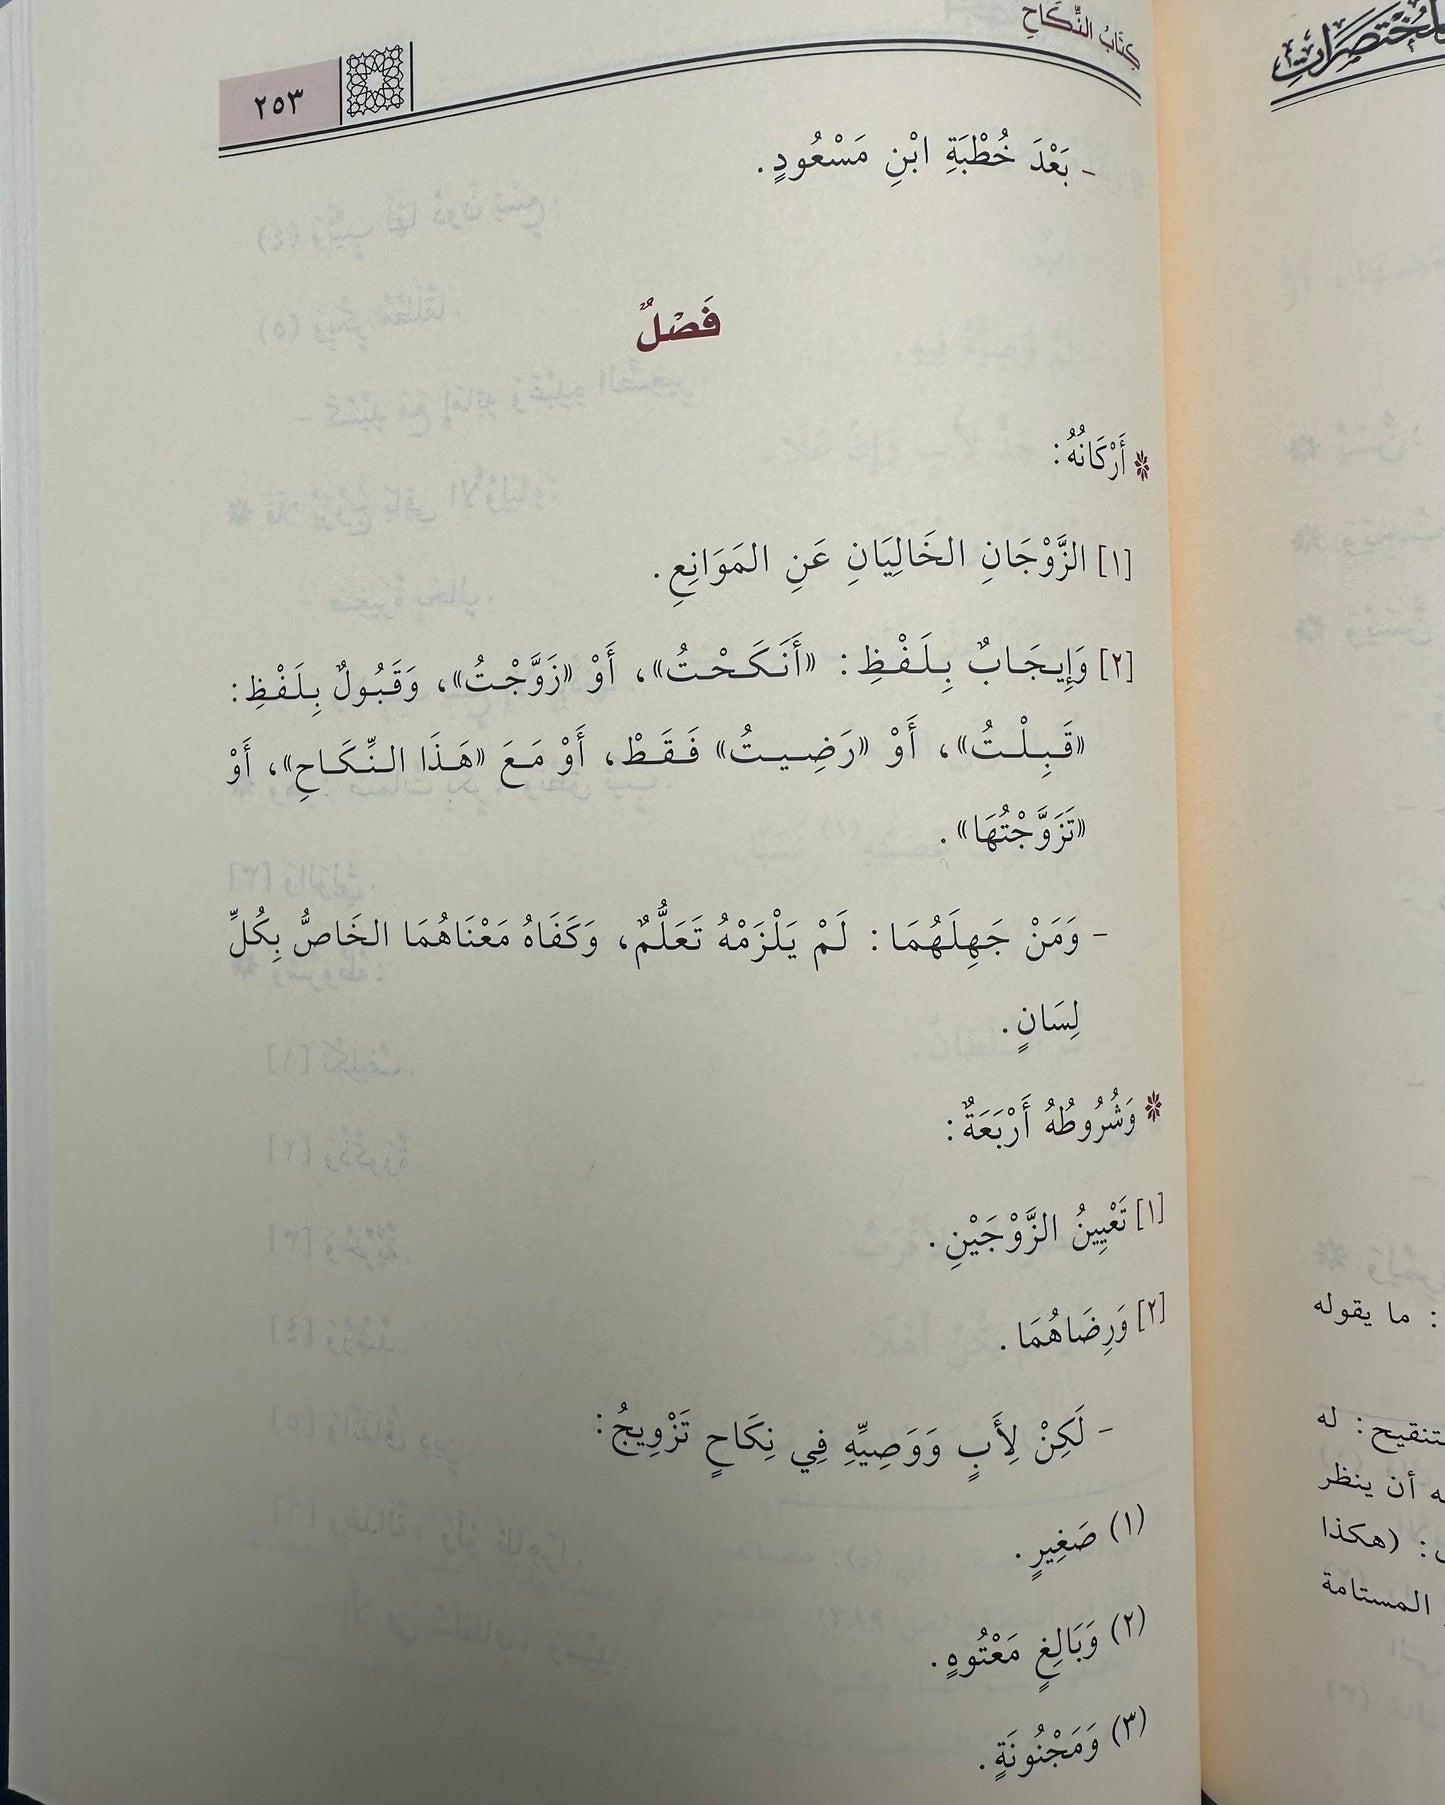 كِتَابُ النِّكَاحِ
٢٥٣
- بَعْدَ خُطْبَةِ ابْنِ مَسْعُودٍ.
فَصْلٌ
* أَرْكَانُهُ:
[١] الزَّوْجَانِ الخَالِيَانِ عَنِ المَوَانِعِ.
[٢] وَإِيجَابٌ بِلَفْظِ: «أَنْكَحْتُ»، أَوْ «زَوَّجْتُ»، وَقَبُولٌ بِلَفْظِ:
«قَبِلْتُ»، أَوْ «رَضِيتُ» فَقَطْ، أَوْ مَعَ «هَذَا النِّكَاحِ»، أَوْ
«تَزَوَّجْتُهَا».
- وَمَنْ جَهِلَهُمَا: لَمْ يَلْزَمْهُ تَعَلُّمٌ، وَكَفَاهُ مَعْنَاهُمَا الخَاصُّ بِكُلِّ
لِسَانٍ.
* وَشُرُوطُهُ أَرْبَعَةٌ:
[١] تَعْيِينُ الزَّوْجَيْنِ.
[٢] وَرِضَاهُمَا.
- لَكِنْ لِأَبٍ وَوَصِيِّهِ فِي نِكَاحٍ تَزْوِيجُ:
(١) صَغِيرٍ.
(٢) وَبَالِغٍ مَعْتُوهٍ.
(٣) وَمَجْنُونَةٍ.
: ما يقوله
: له
أن ينظر
: (هكذا
المستامة